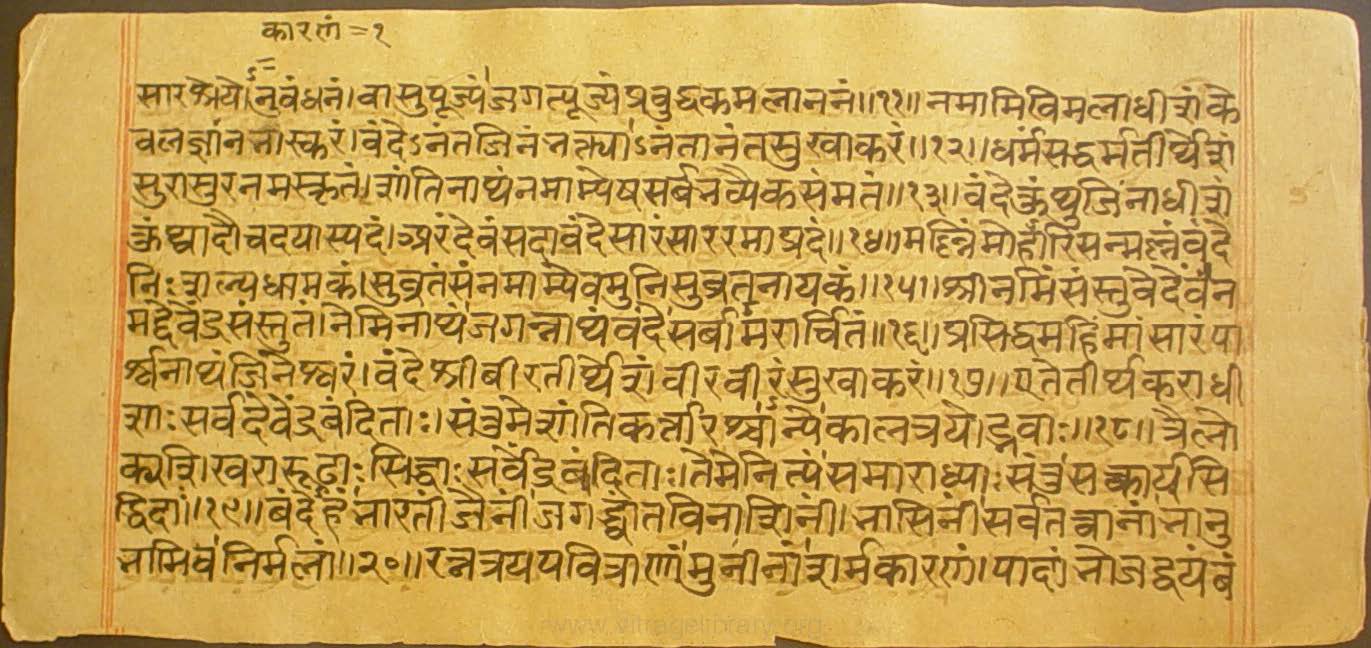 कारणं=१
सारश्रेयोऽनुबंधनं।वासुपूज्यंजगत्पूज्यंप्रबुद्धकमलाननं॥११॥नमामिविमलाधीशंके
वलज्ञानभास्करं।वंदेऽनंतजिनंभक्त्याऽनंतानंतसुखाकरं॥१२॥धर्मसद्धर्मतीर्थेशं
सुरासुरनमस्कृतं।शांतिनाथंनमाम्येषसर्बभव्यैकसंमतं॥१३॥वंदेकुंथुजिनाधीशं
कुंथ्वादौचदयास्पदं।अरंदेवंसदावंदेसारंसाररमाप्रदं॥१४॥मल्लिंमोहारिसन्मल्लंवंदे
निःशल्यधामकं।सुव्रतंसंनमाम्येवमुनिसुव्रतनायकं॥१५॥श्रीनमिंसंस्तुवेदेवंन
मद्देवेंद्रसंस्तुतं।नेमिनाथंजगन्नाथंवंदेसर्बामरार्चितं॥१६॥प्रसिद्धमहिमांसारंपा
र्श्वनाथंजिनेश्वरं।वंदेश्रीबीरतीर्थेशंवीरवीरंसुखाकरं॥१७॥एतेतीर्थकराधी
शाःसर्वदेवेंद्रबंदिताः।संत्रमेशांतिकर्त्तारश्चान्येकालत्रयोद्भवाः॥१८॥त्रैलो
क्यशिखरारूढाःसिद्धाःसर्वेंद्रबंदिताः।तेमेनित्यंसमाराध्याःसंत्रसत्कार्यसि
द्धिदाः॥१९॥बंदेहंभारतींजैनींजगद्ध्वांतविनाशिनीं।भासिनींसर्वतत्वानांभानु
भामिवनिर्मलां॥२०॥रत्नत्रयपवित्राणांमुनीनांशर्मकारणं।पादांभोजद्वयंबं
www.vitragelibrary.org